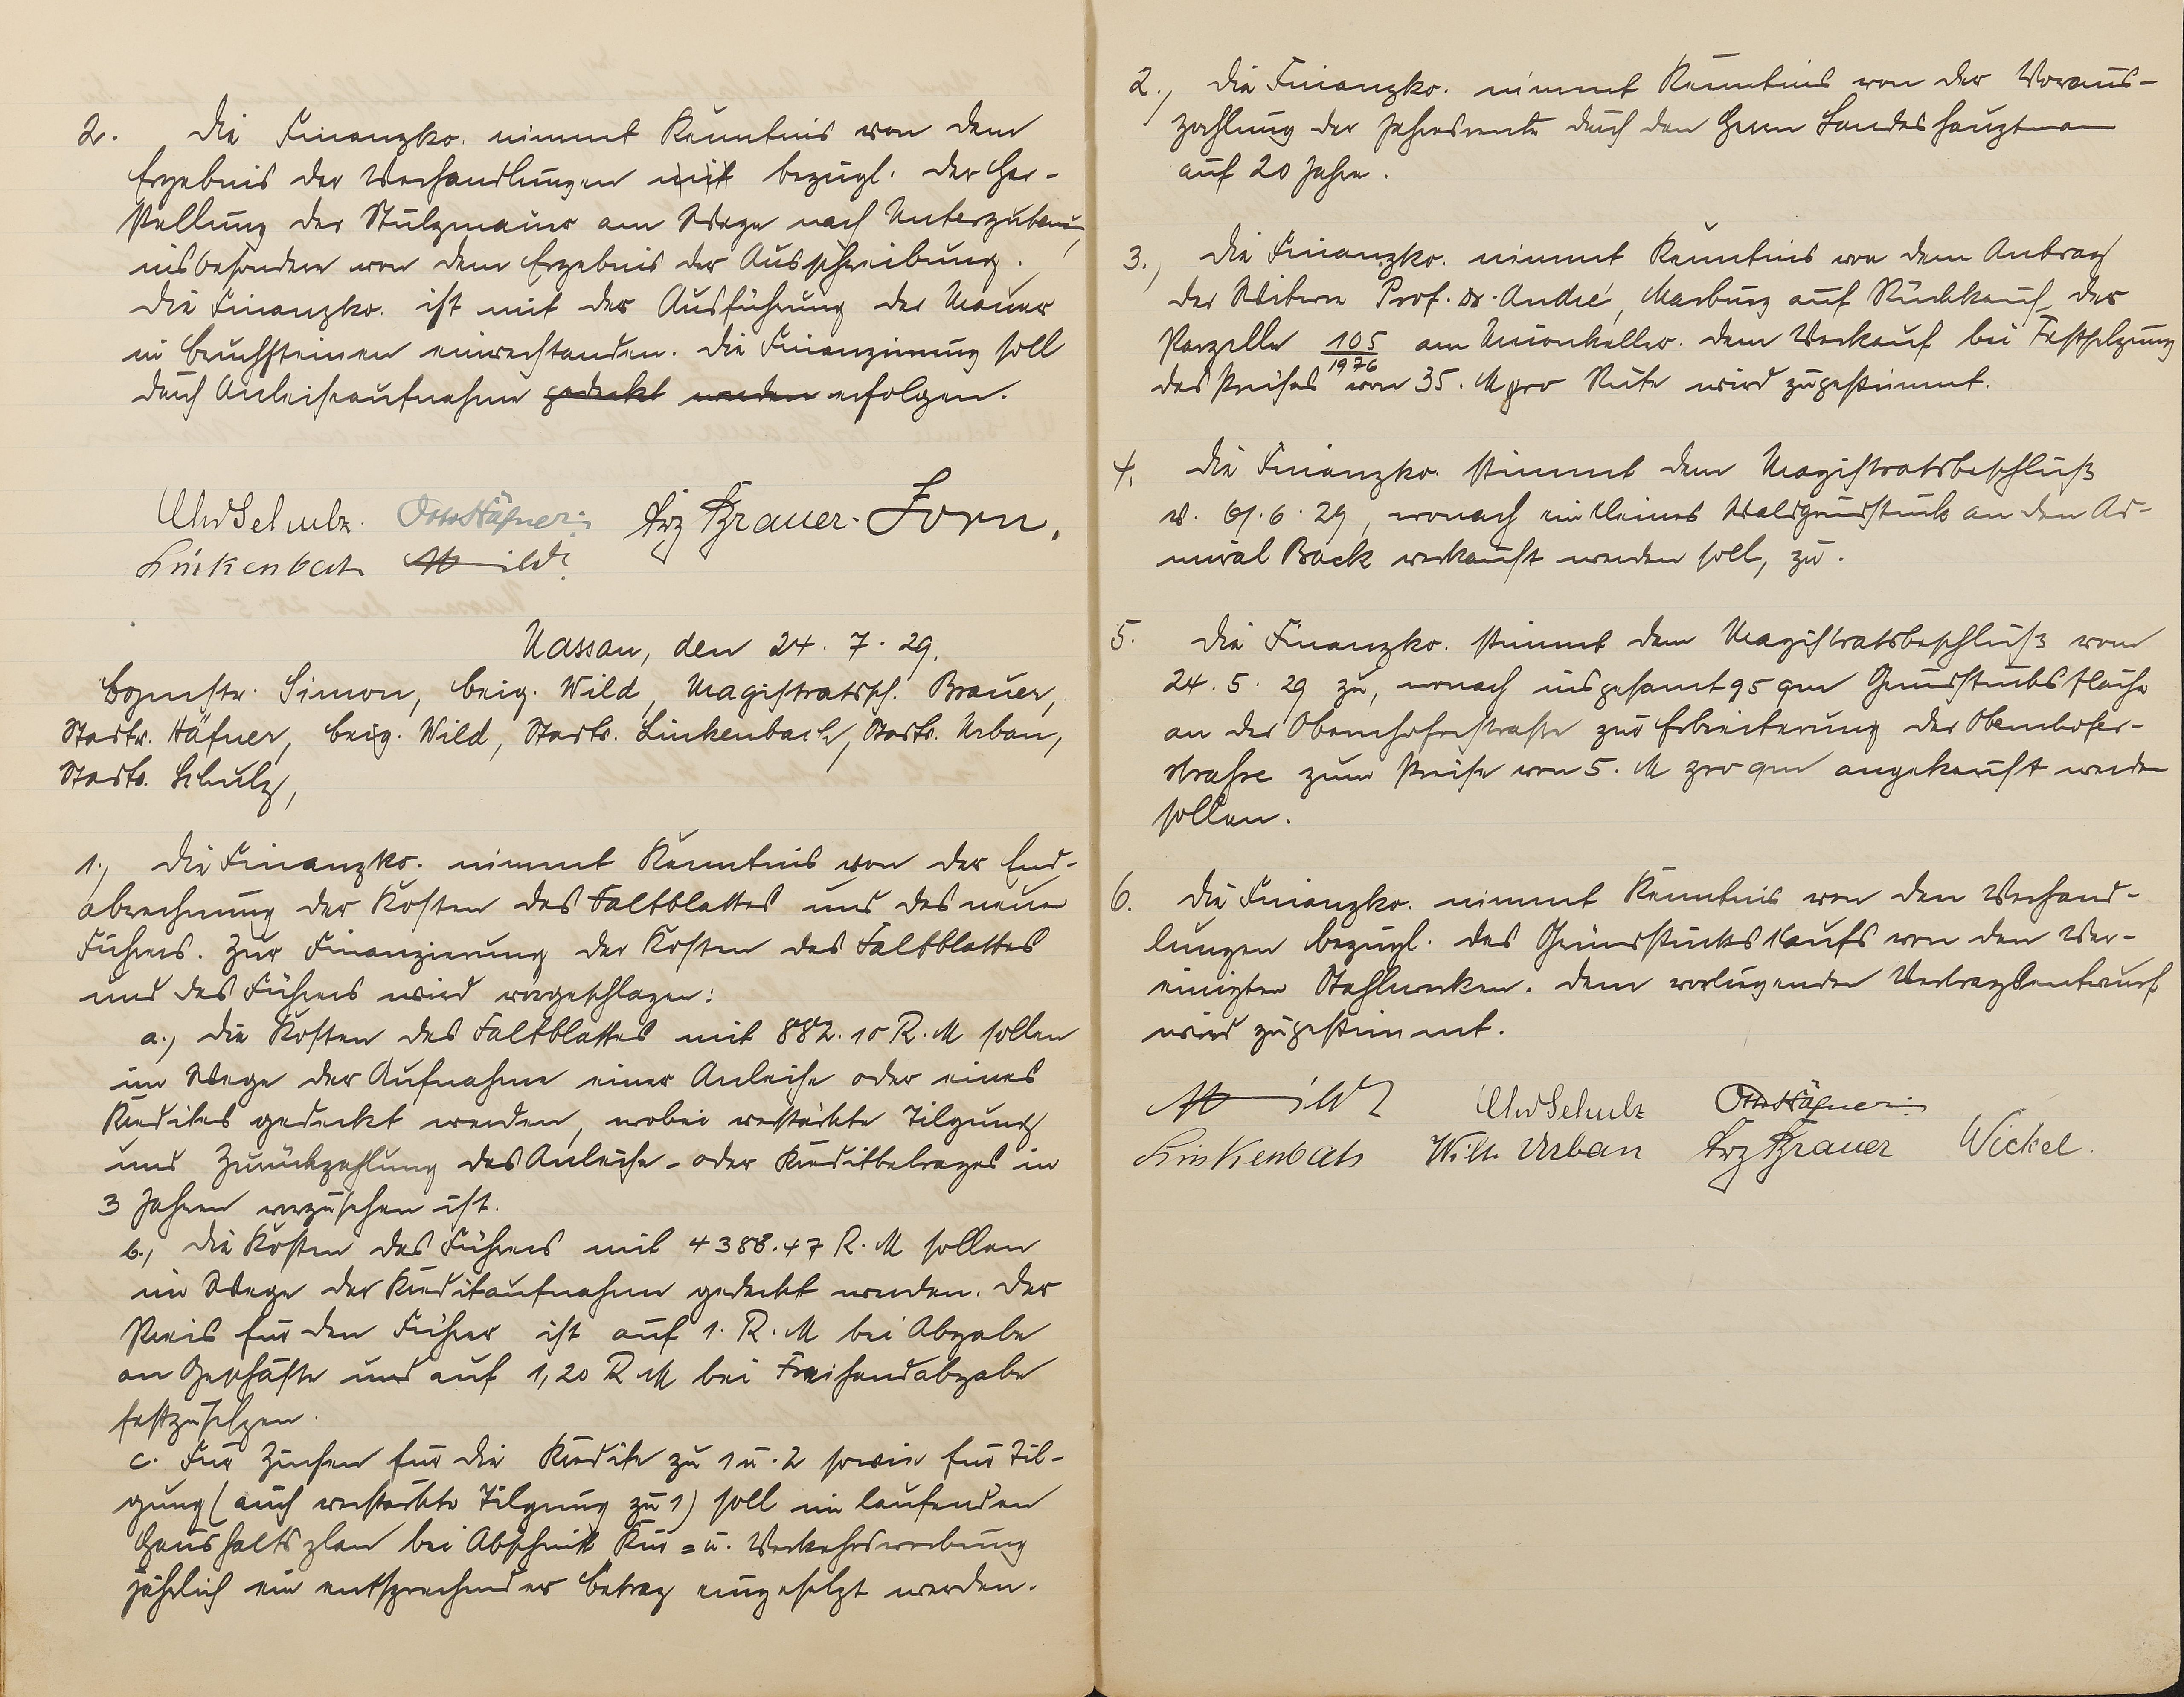 2. Die Finanzko. nimmt Kenntnis von dem
Ergebnis der Verhandlungen mit bezügl. der Her-
stellung der Stützmauer am Wege nach Unterzubern,
insbesondere von dem Ergebnis der Ausschreibung.
Die Finanzko. ist mit der Ausführung der Mauer
in Bruchsteinen einverstanden. Die Finanzierung soll
durch Anleiheaufnahme gedeckt werden erfolgen.
Schulz. Otto Häfner. Frz Brauer. Forn.
Linkenbach Wild
Nassau, den 24. 7. 29.
Bgmstr. Simon, Beig. Wild, Magistratssch. Brauer,
Stadtv. Häfner, Beig. Wild, Stadtv. Linkenbach, Stadtv. Urban,
Stadtv. Schulz,
1., Die Finanzko. nimmt Kenntnis von der End-
abrechnung der Kosten des Faltblattes und des neuen
Führers. Zur Finanzierung der Kosten des Faltblattes
und des Führers wird vorgeschlagen:
a., Die Kosten des Faltblattes mit 882.10 R.M sollen
im Wege der Aufnahme einer Anleihe oder eines
Kredites gedeckt werden, wobei verstärkte Tilgung
und Zurückzahlung des Anleihe- oder Kreditbetrages in
3 Jahren vorzusehen ist.
b., Die Kosten des Führers mit 4388.47 R.M sollen
im Wege der Kreditaufnahme gedeckt werden. Der
Preis für den Führer ist auf 1. R.M bei Abgabe
an Geschäfte und auf 1,20 R M bei Freihandabgabe
festzusetzen.
c. Für Zinsen für die Kredite zu 1 u. 2 sowie für Til-
gung (auch verstärkte Tilgung zu 1) soll im laufenden
Haushaltsplan bei Abschnitt Kur= u. Verkehrswerbung
jährlich ein entsprechender Betrag eingesetzt werden.
2., Die Finanzko. nimmt Kenntnis von der Voraus-
zahlung der Jahresrente durch den Herrn Landeshauptmann
auf 20 Jahre.
3., Die Finanzko. nimmt Kenntnis von dem Antrag
der Witwe Prof. Dr. André, Marburg auf Rückkauf der
Parzelle 105/1976 am Unionkeller. Dem Verkauf bei Festsetzung
des Preises von 35. M pro Rute wird zugestimmt.
4. Die Finanzko. stimmt dem Magistratsbeschluß
v. 6.29, wonach ein kleines Waldgrundstück an den Ad-
miral Back verkauft werden soll, zu.
5. Die Finanzko. stimmt dem Magistratsbeschluß vom
24. 5. 29 zu, wonach insgesamt 95 qm Grundstücksfläche
an der Obernhoferstraße zur Erbreiterung der Obernhofer-
strahse zum Preise von 5. M pro qm angekauft werden
sollen.
6. Die Finanzko. nimmt Kenntnis von den Verhand-
lungen bezügl. des Grundstückskaufs von den Ver-
einigten Stahlwerken. Dem vorliegenden Vertragsentwurf
wird zugestimmt.
Wild Schulz Otto Häfner.
Linkenbach Wilh. Urban Frz Brauer Wickel.